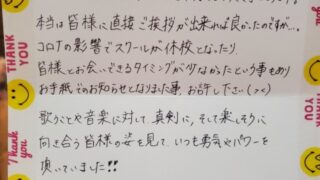 本当は皆様に直接ご挨拶が出来れば良かったのですが…。
コロナの影響でスクールが休校となったり
皆様とお会いできるタイミングが少なかったという事もあり
お手紙でのお知らせとなりました事、お許し下さい(><)
歌うことや音楽に対して、真剣に、そして楽しそうに
向き合う皆様の姿を見て、いつも勇気やパワーを
頂いていました!!
THANK YOU
Thank you
THANK YOU
Thank you